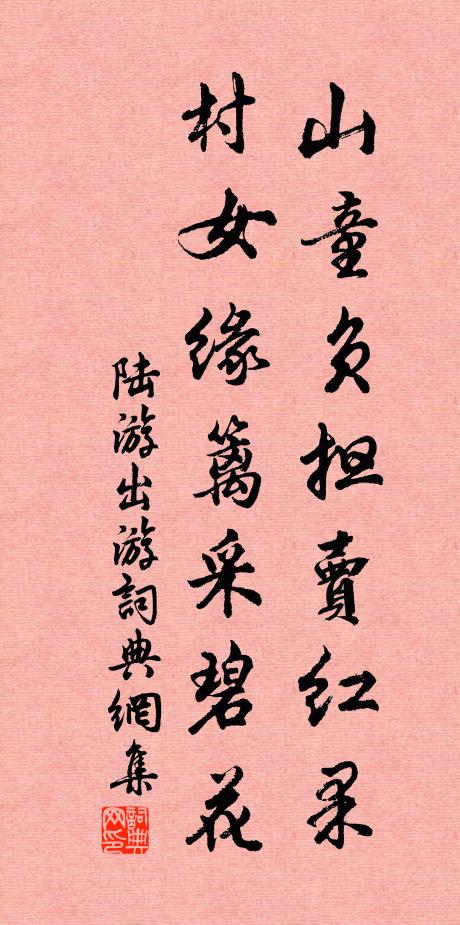 山童负担賣红果
村女缘篱采碧花
陆游出游詞典網集
詞典网印